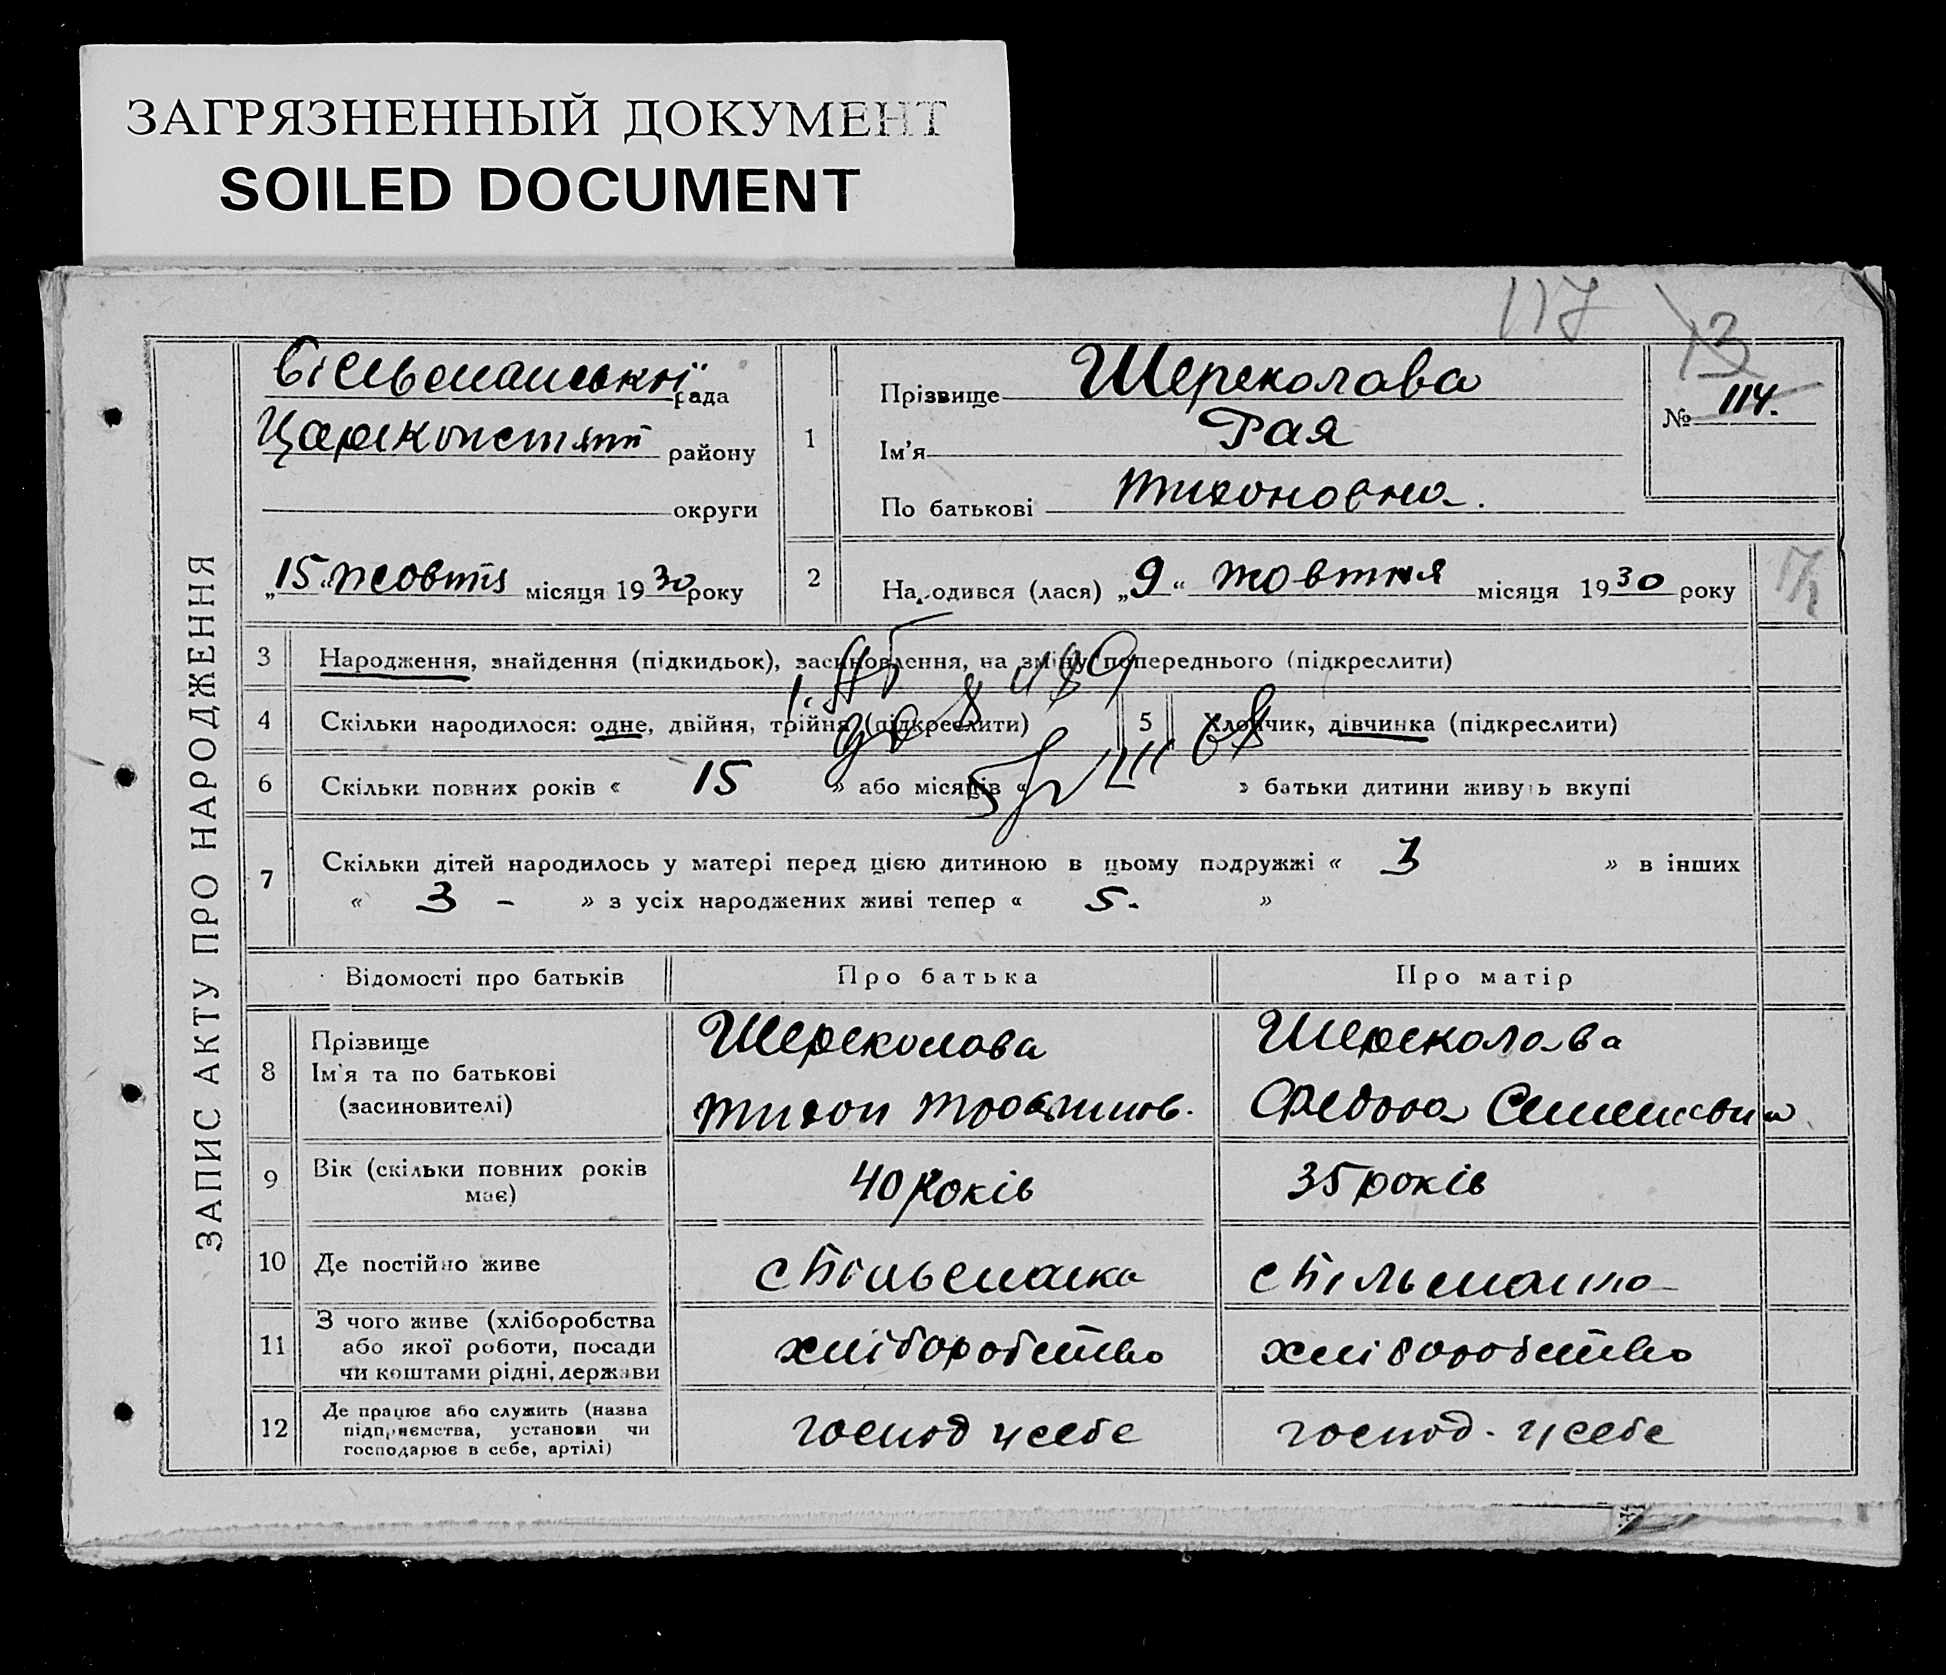 ЗАГРЯЗНЕННЫЙ ДОКУМЕНТ
SOILED DOCUMENT
117
13
ЗАПИС АКТУ ПРО НАРОДЖЕННЯ
рада
району
округи
„15“ жовтня місяця 1930 року
1
Прізвище Шереколова
Ім'я Рая
По батькові Тихоновна.
№ 114.
2
Народився (лася) „9“ жовтня місяця 1930 року
3 Народження, знайдення (підкидьок), засиновлення, на зміну попереднього (підкреслити)
4 Скільки народилося: одне, двійня, трійня (підкреслити)
5 Хлопчик, дівчинка (підкреслити)
6 Скільки повних років « 15 » або місяців « » батьки дитини живуть вкупі
7 Скільки дітей народилось у матері перед цією дитиною в цьому подружжі « 3 » в інших
« 3 - » з усіх народжених живі тепер « 5. »
Відомості про батьків Про батька Про матір
8 Прізвище
Ім'я та по батькові
(засиновителі)
Шереколова
Тихон
Шереколова
9 Вік (скільки повних років
має)
40 років
35 років
10 Де постійно живе
11 З чого живе (хліборобства
або якої роботи, посади
чи коштами рідні, держави
хліборобство
хліборобство
12 Де працює або служить (назва
підприємства, установи чи
господарює в себе, артілі)
господ у себе
господ. у себе